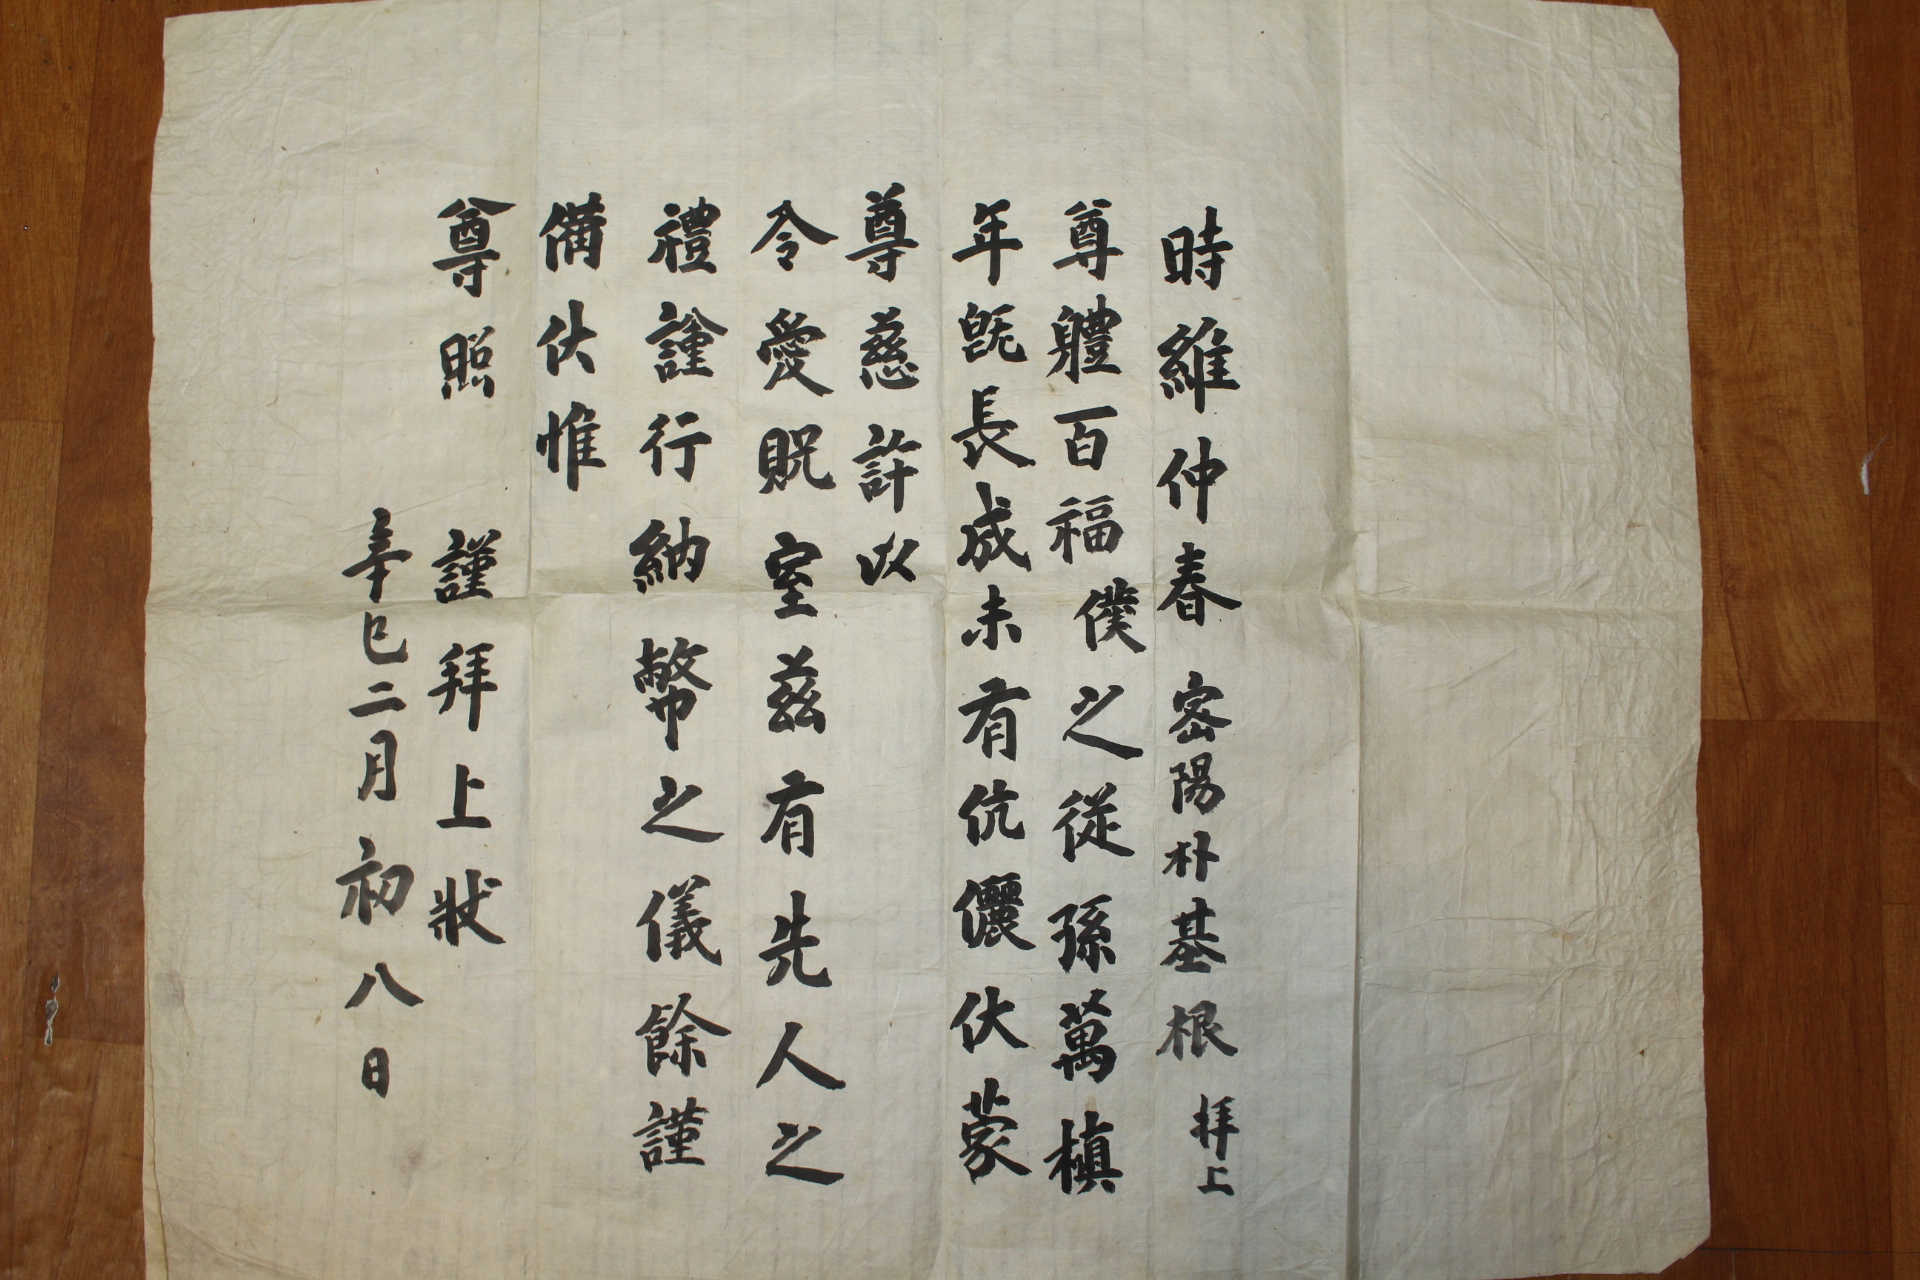 時維仲春 密陽朴基根 拜上
尊軆百福 僕之從孫萬槙
年旣長成未有伉儷伏蒙
尊慈許以
令愛貺室玆有先人之
禮謹行納幣之儀餘謹
備伏惟
尊照 謹拜上狀
辛巳二月初八日